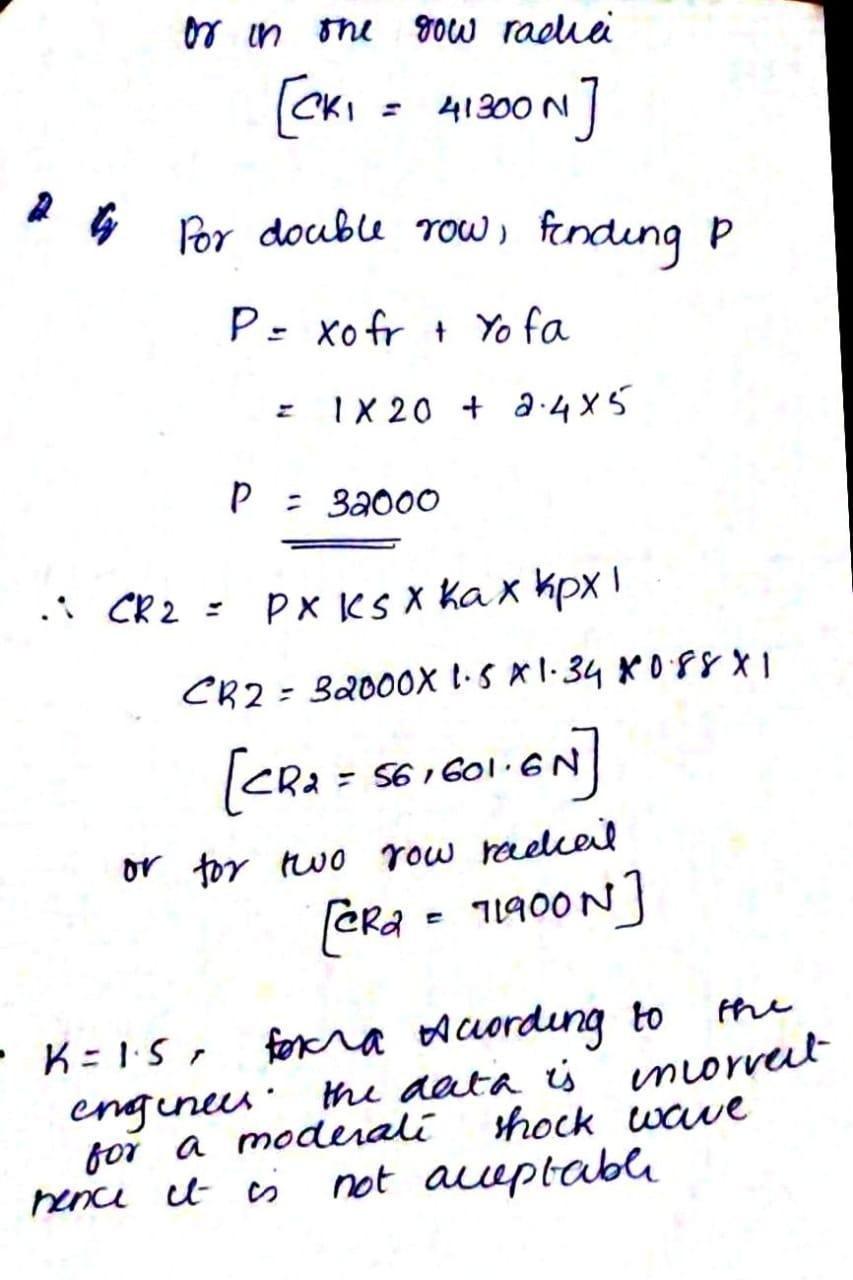 or in one row radiei
[CK1 = 41300 N]
2 For double row, finding P
P = Xofr + Yofa
= 1 X 20 + 2.4 X 5
P = 32000
∴ CR2 = P X KS X Ka X Kp X 1
CR2 = 32000 X 1.5 X 1.34 X 0.88 X 1
[CR2 = 56,601.6 N]
or for two row
[CR2 = 71900 N]
K = 1.5, According to the
engineer. the data is incorrect
for a moderate shock wave
hence it is not acceptable